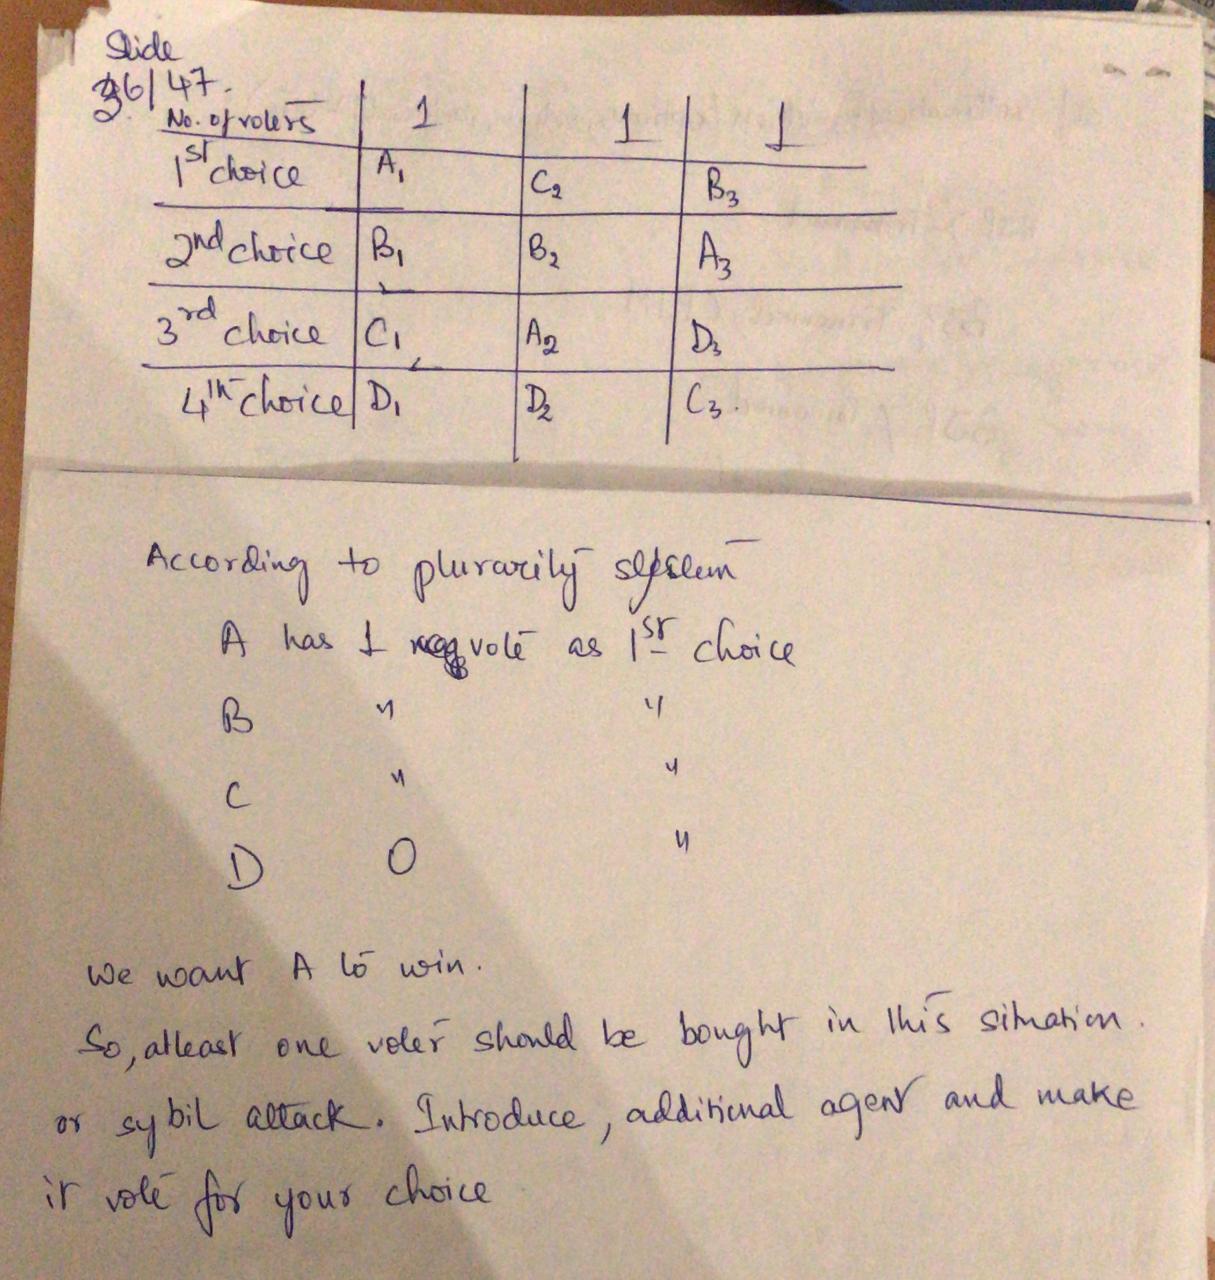 Slide
36/47.
No. of voters 1 1 1
1st choice A1 C2 B3
2nd choice B1 B2 A3
3rd choice C1 A2 D3
4th choice D1 D2 C3.
According to plurarity system
A has 1 vote as 1st choice
B " "
C " "
D 0 "
We want A to win.
So, atleast one voter should be bought in this situation.
or sybil attack. Introduce, additional agent and make
it vote for your choice